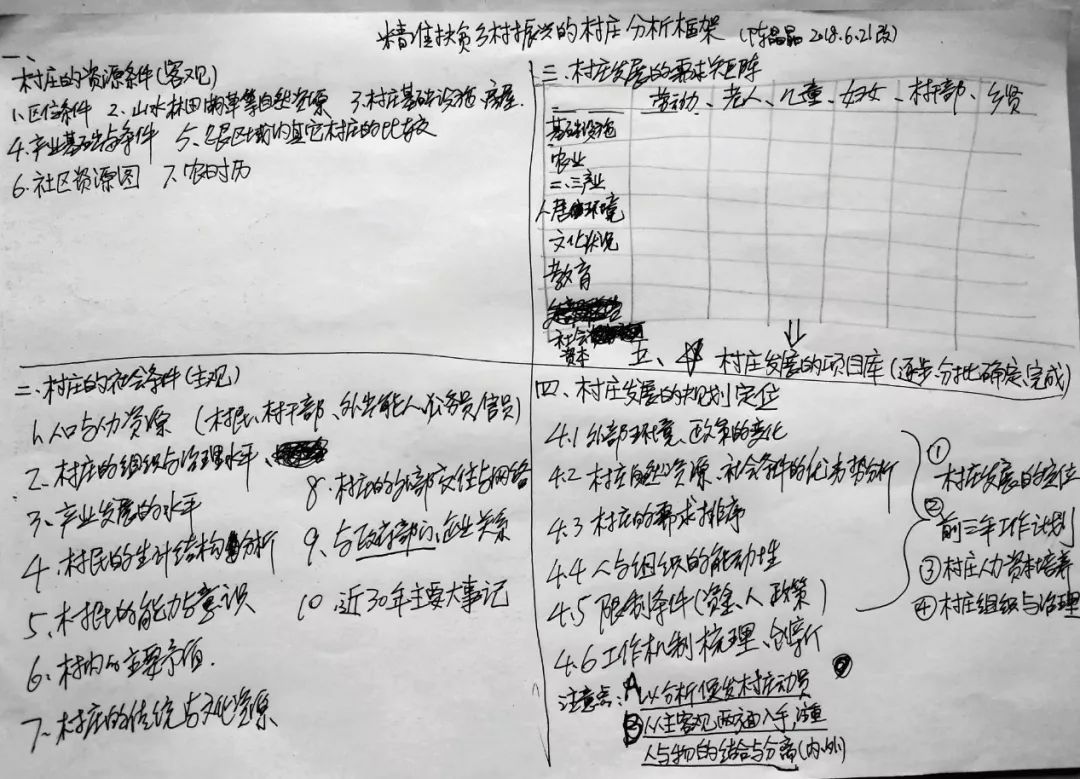 精准扶贫乡村振兴的村庄分析框架 (陈晶晶 2018.6.21改)
一、
村庄的资源条件(客观)
1、区位条件 2、山水林田湖草等自然资源 3、村庄基础设施、房屋.
4、产业基础与条件 5、县区域内其它村庄的比较
6、社区资源图 7、农时历
二、村庄的社会条件(主观)
1、人口与人力资源 (村民、村干部、外出能人、公务员/官员)
2、村庄的组织与治理水平、
3、产业发展的水平
4、村民的生计结构分析
5、村民的能力与意识
6、村内的主要矛盾.
7、村庄的传统与文化资源
8、村庄的外部交往与网络
9、与政府部门、企业关系
10、近30年主要大事记
三、村庄发展的需求矩阵
劳动、老人、儿童、妇女、村干部、乡贤
基础设施
农业
二、三产业
人居环境
文化状况
教育
社会
资本
五、村庄发展的项目库 (逐步、分批确定、完成)
四、村庄发展的规划定位
4.1 外部环境、政策的变化
4.2 村庄自然资源、社会条件的优劣势分析
4.3 村庄的需求排序
4.4 人与组织的能动性
4.5 限制条件(资金、人、政策)
4.6 工作机制梳理、创新
① 村庄发展的定位
② 前三年工作计划
③ 村庄人力资本培养
④ 村庄组织与治理
注意点: A 以分析促发村庄动员
B 从主客观两方面入手,注重
人与物的结合与分离(内、外)